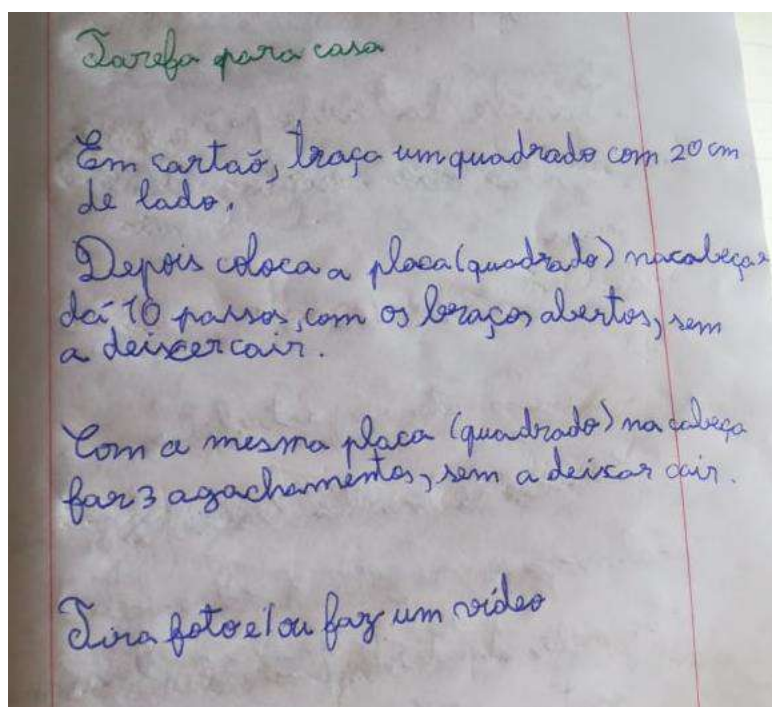 Tarefa para casa
Em cartaõ, traça um quadrado com 20 cm
de lado.
Depois coloca a placa (quadrado) na cabeça e
dá 10 passos, com os braços abertos, sem
a deixer cair.
Com a mesma placa (quadrado) na cabeça
faz 3 agachamentos, sem a deixar cair.
Tira foto e/ou faz um vídeo